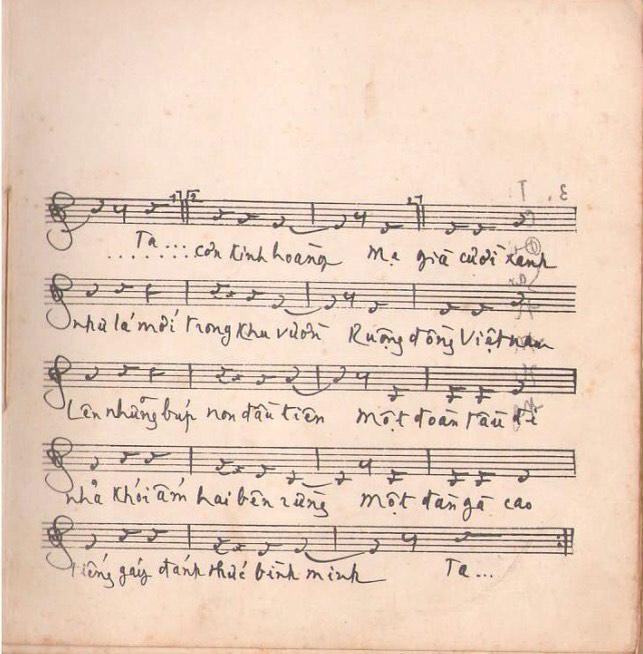 Ta... cơn kinh hoàng Mạ già cười xanh
như lá mới trong khu vườn Ruộng đồng Việt nam
Lên những búp non đầu tiên Một đoàn tàu đi
nhả khói ấm hai bên rừng Một đàn gà cao
tiếng gáy đánh thức bình minh Ta...